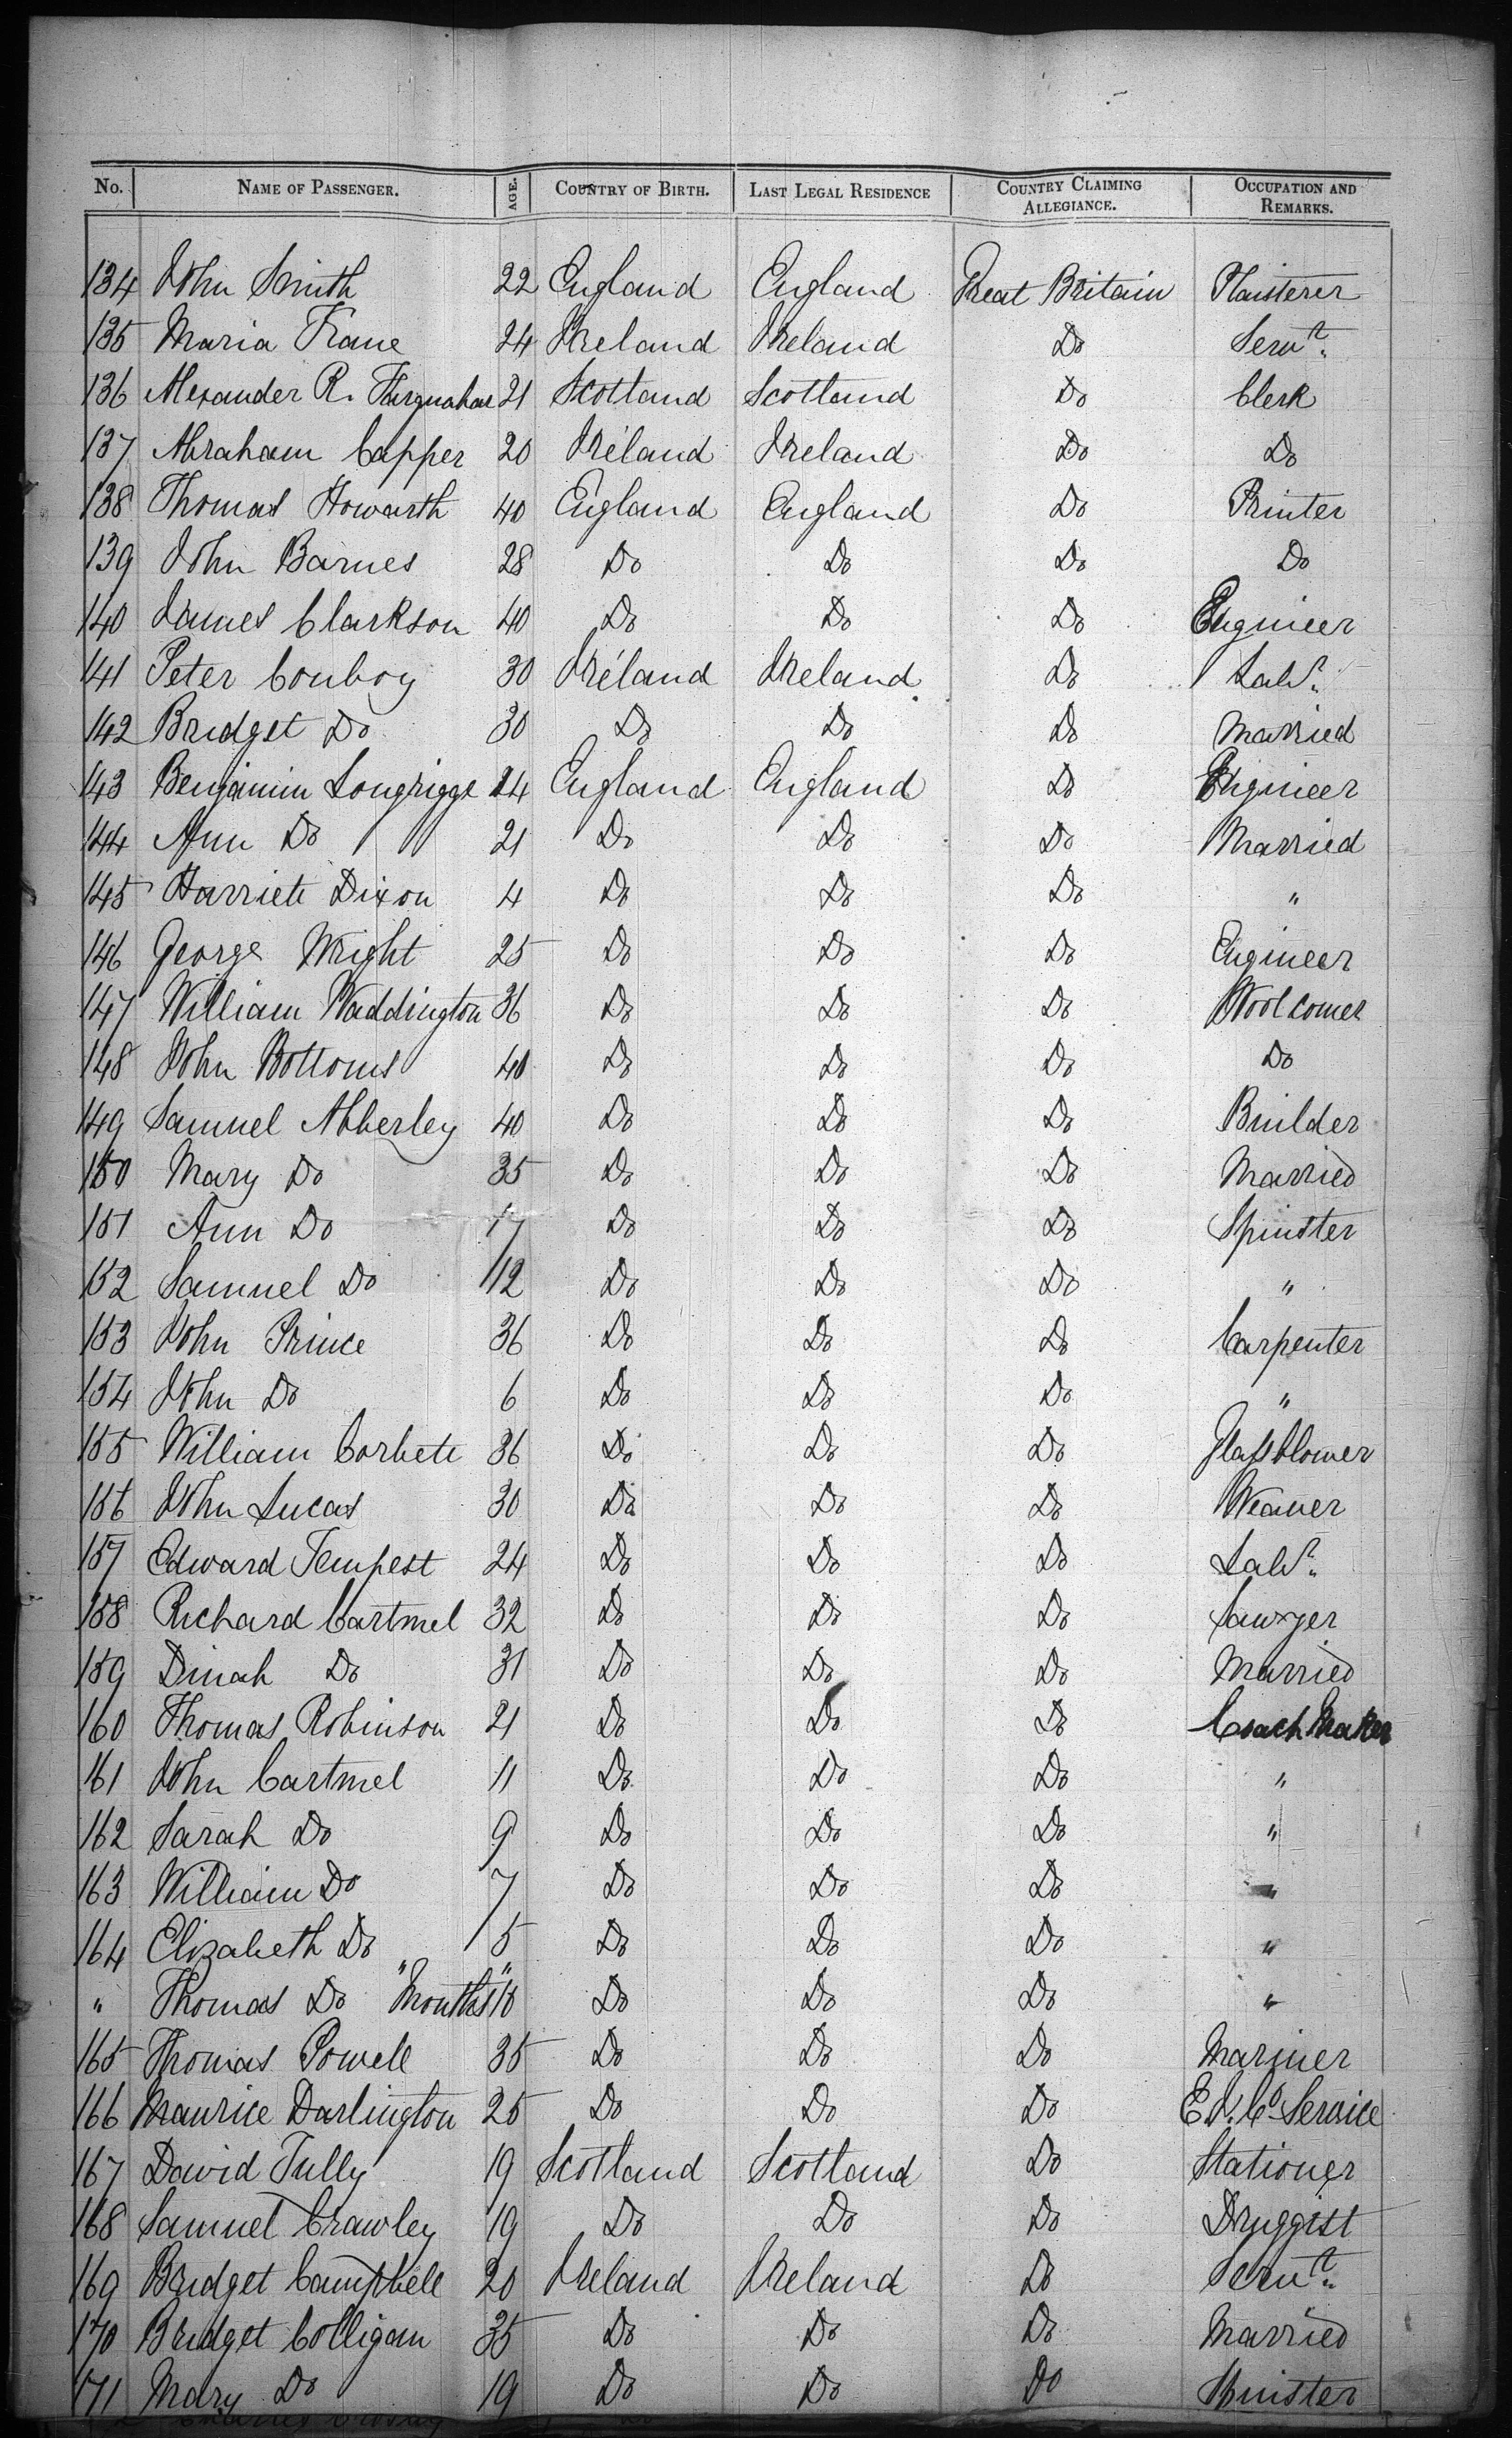 No. NAME OF PASSENGER. AGE. COUNTRY OF BIRTH. LAST LEGAL RESIDENCE COUNTRY CLAIMING ALLEGIANCE. OCCUPATION AND REMARKS.
134 John Smith 22 England England Great Britain Plaisterer
135 Maria Frane 24 Ireland Ireland Do Servt.
136 Alexander R. Farquahar 21 Scotland Scotland Do Clerk
137 Abraham Capper 20 Ireland Ireland Do Do
138 Thomas Howarth 40 England England Do Printer
139 John Barnes 28 Do Do Do Do
140 James Clarkson 40 Do Do Do Engineer
141 Peter Conboy 30 Ireland Ireland Do Labr.
142 Bridget Do 30 Do Do Do Married
143 Benjamin Longriggs 24 England England Do Engineer
144 Ann Do 21 Do Do Do Married
145 Harriett Dixon 4 Do Do Do "
146 George Wright 25 Do Do Do Engineer
147 William Waddington 36 Do Do Do Woolcomer
148 John Bottoms 40 Do Do Do Do
149 Samuel Abberley 40 Do Do Do Builder
150 Mary Do 35 Do Do Do Married
151 Ann Do 17 Do Do Do Spinster
152 Samuel Do 12 Do Do Do "
153 John Prince 36 Do Do Do Carpenter
154 John Do 6 Do Do Do "
155 William Corbett 36 Do Do Do Glassblower
156 John Lucas 30 Do Do Do Weaver
157 Edward Tempest 24 Do Do Do Labr.
158 Richard Cartmel 32 Do Do Do Sawyer
159 Dinah Do 31 Do Do Do Married
160 Thomas Robinson 21 Do Do Do Coach Maker
161 John Cartmel 11 Do Do Do "
162 Sarah Do 9 Do Do Do "
163 William Do 7 Do Do Do "
164 Elizabeth Do 5 Do Do Do "
" Thomas Do "Months" 10 Do Do Do "
165 Thomas Powell 35 Do Do Do Mariner
166 Maurice Darlington 25 Do Do Do E.I. Co Service
167 David Tully 19 Scotland Scotland Do Stationer
168 Samuel Crawley 19 Do Do Do Druggist
169 Bridget Campbell 20 Ireland Ireland Do Servt.
170 Bridget Colligan 35 Do Do Do Married
171 Mary Do 19 Do Do Do Spinster